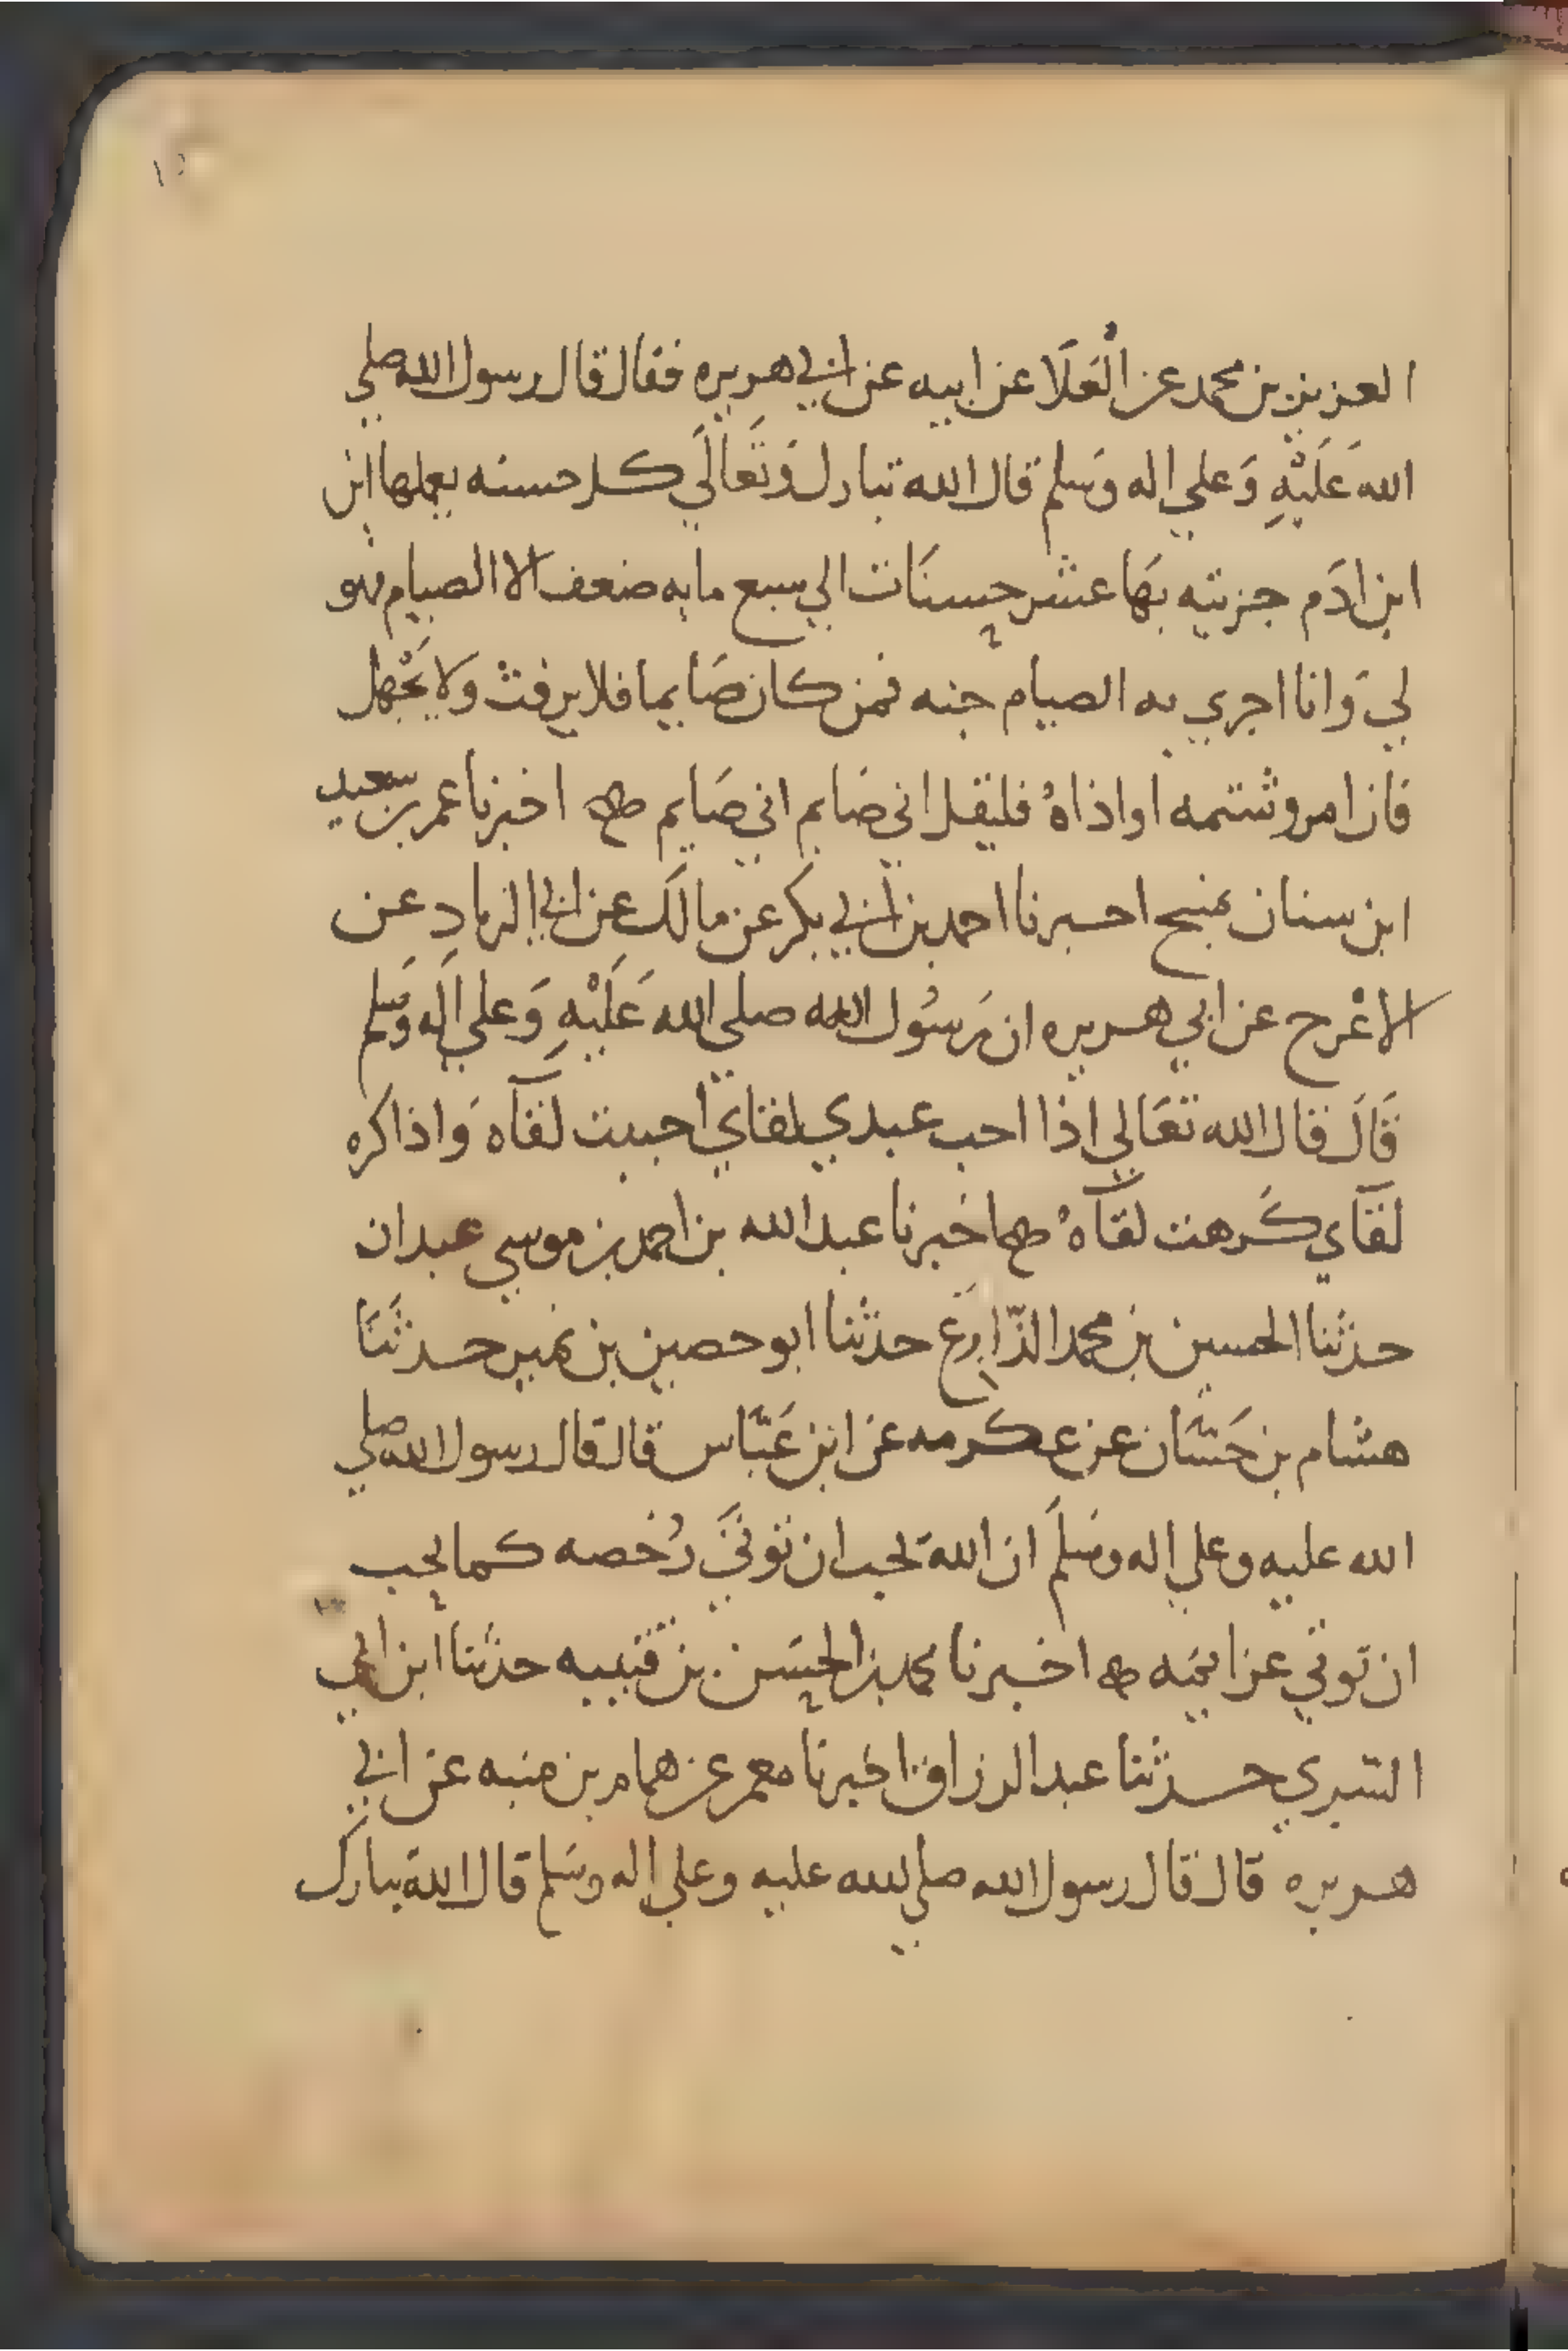 العزيز بن محمد عن الْعَلَا عن ابيه عن ابي هريره فقال قال رسول الله صلي
الله عَلَيْهِ وَعلي اله وَسَلم قال الله تبارك وَتَعَالَي كل حسنه يعملها ابن
ابن ادَم جزيته بهَا عشر حسنَات الي سبع مايه ضعف الا الصيام فهو
لي وَانا اجزي به الصيام جنه فمن كان صَايما فلا يرفث وَلا يَجْهل
فان امرو شتمه او اذاهُ فليقل اني صَايم اني صَايم اخبرنا عمر بن سعيد
ابن سنان بمنبج اخبرنا احمد بن ابي بكر عن مالك عن ابي الزناد عن
الاعْرج عن ابي هريره ان رَسُول الله صلي الله عَلَيْهِ وَعلي اله وَسَلم
قَالَ قال الله تعَالي اذا احب عبدي لقاي احببت لقآه وَاذا كره
لقآي كَرهت لقآهُ اخبرنا عبد الله بن احمد بن موسي عبدان
حدثنا الحسين بن محمد الذَّارِع حدثنا ابو حصين بن نمير حدثَنَا
هشام بن حَسَّان عن عكرمه عن ابن عَبَّاس قال قال رسول الله صلي
الله عليه وعلي اله وسَلمَ ان الله يحب ان توتَي رُخصه كما يحب
ان توتي عزايمَه اخبرنا محمد بن الحسَن بن قتيبه حدثنا ابن ابي
السري حدثنا عبد الرزاق اخبرنا معمر عن همام بن منبه عن ابي
هريره قال قال رسول الله صلي الله عليه وعلي اله وسَلم قال الله تبارك